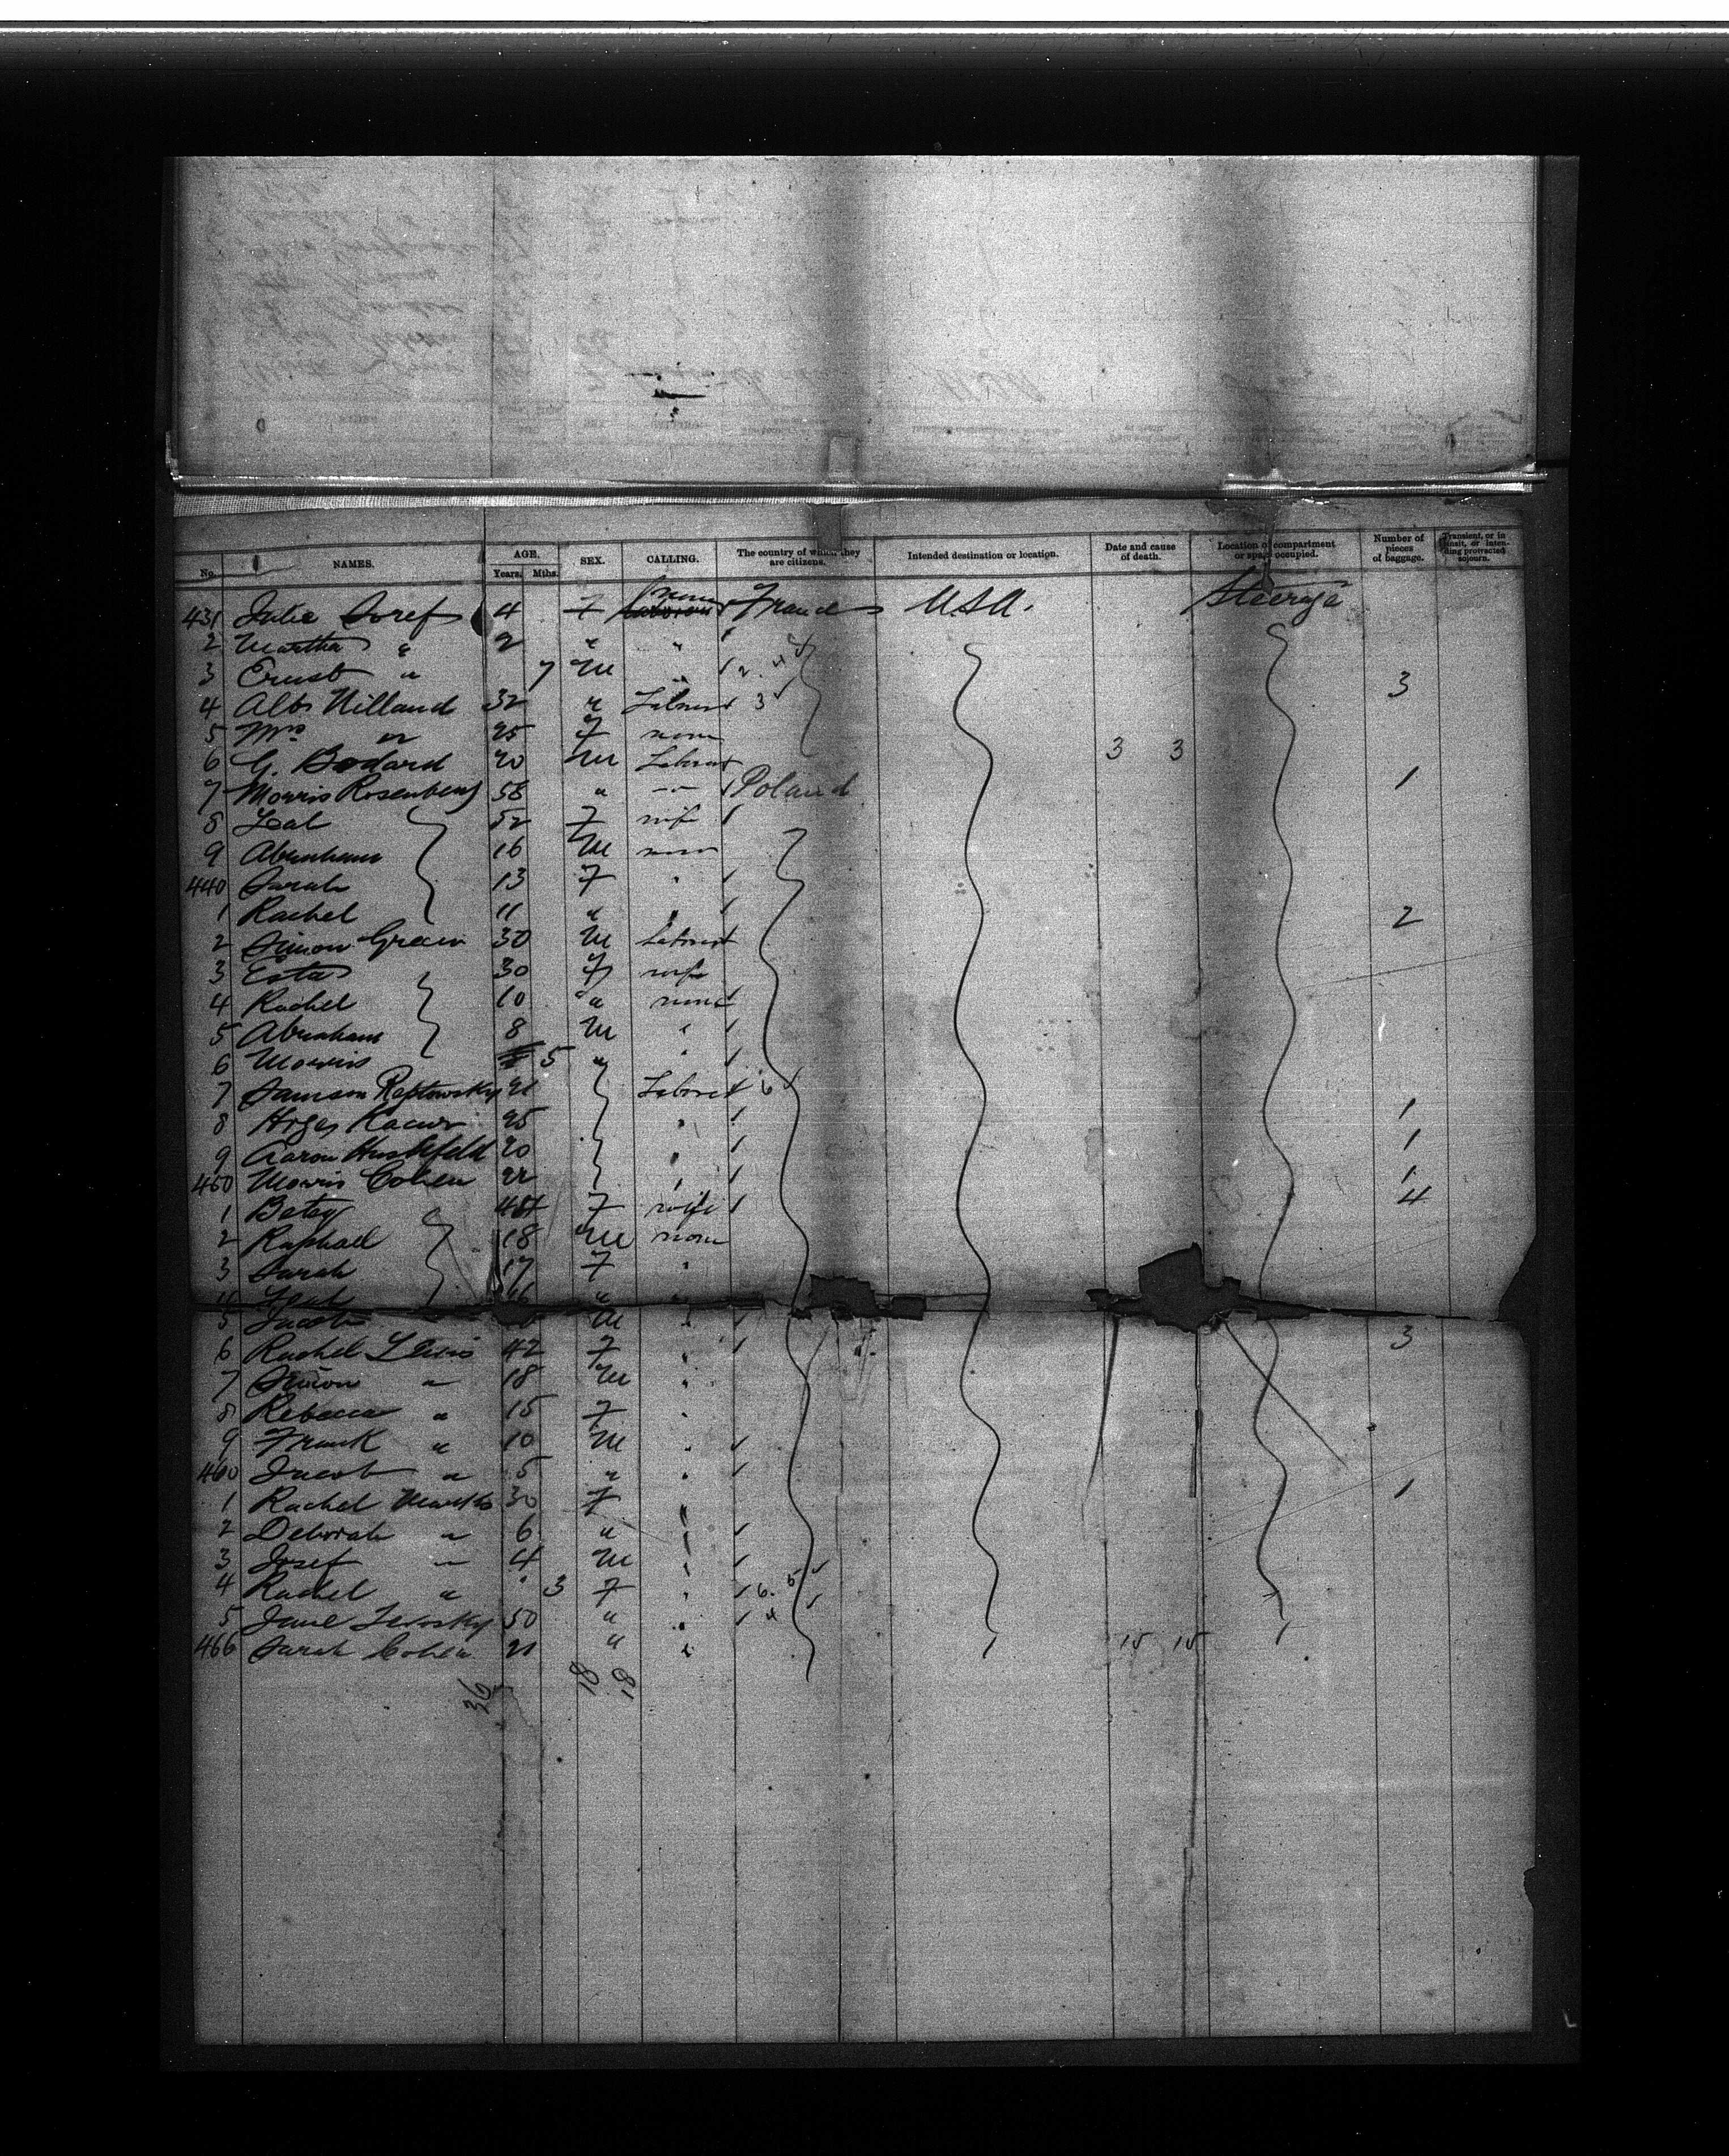 No. NAMES. AGE. Years. Mths. SEX. CALLING. The country of which they are citizens. Intended destination or location. Date and cause of death. Location of compartment or space occupied. Number of pieces of baggage. Transient, or in transit, or intending protracted sojourn.
431 Julie Josef 4 F none France USA. Steerage
2 Martha " 2 " "
3 Ernst " 7 M " 3
4 Albt Hilland 32 " Laborer
5 Mrs " 25 F none
6 G. Bodard 20 M Laborer 3 3
7 Morris Rosenberg 58 " " Poland 1
8 Leah 52 F wife
9 Abraham 16 M none
440 Sarah 13 F "
1 Rachel 11 " " 2
2 Simon Green 30 M Laborer
3 Esta 30 F wife
4 Rachel 10 " none
5 Abraham 8 M "
6 Morris 5 " "
7 Samson 21 Laborer 6
8 25 " 1
9 Aaron 20 " 1
450 Morris Cohen 22 " 1
1 Betsy F wife 4
2 Raphael 18 M none
3 Sarah 17 F "
4 Leah 16 " "
5 Jacob M "
6 Rachel Lewis 42 F " 3
7 Simon " 18 M "
8 Rebecca " 15 F "
9 Frank " 10 M "
460 Jacob " 5 " "
1 Rachel 30 F " 1
2 Deborah " 6 " "
3 Josef " 4 M "
4 Rachel " 3 F " 6. 5
5 Jane 50 " " 4
466 Sarah Cohen 21 " " 15 15
36 18 18